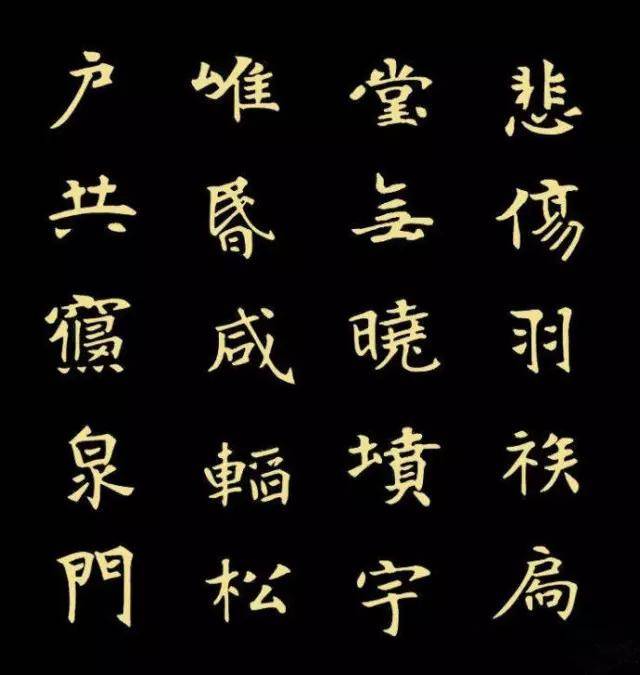 悲傷羽族扃
堂無曉墳宇
唯昏咸韜松
户共泉門